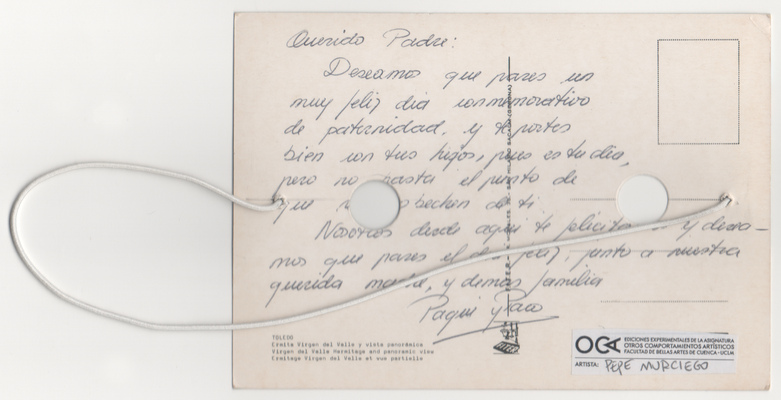 Querido Padre:
Deseamos que pases un
muy feliz dia conmemorativo
de paternidad, y te portes
bien con tus higos, pues es tu dia,
pero no hasta el punto de
que bechen de ti
Nosotros desde aqui te felicitamos y desea-
mos que pases el dia feliz, junto a nuestra
querida madre, y demas familia
Paqui y Paco
TOLEDO
Ermita Virgen del Valle y vista panorámica
Virgen del Valle Hermitage and panoramic view
Ermitage Virgen del Valle et vue partielle
OCA
EDICIONES EXPERIMENTALES DE LA ASIGNATURA
OTROS COMPORTAMIENTOS ARTÍSTICOS
FACULTAD DE BELLAS ARTES DE CUENCA · UCLM
ARTISTA: PEPE MURCIEGO